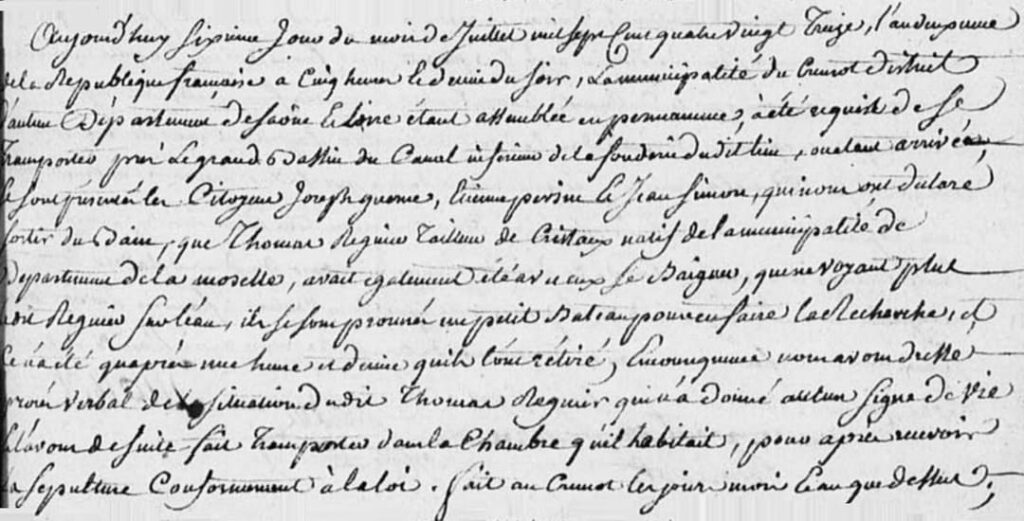 Aujourd'huy sixieme Jour du mois de Juillet mil sept Cent quatre vingt Treize, l'an deuxieme
de la Republique francaise a Cinq heures et demie du soir, La municipalité du Creusot District
d'autun Département de saône et loire étant assemblée en permanence, a été requise de se
Transporter près Le grand Bassin du Canal inférieur de la fonderie dudit lieu, ou etant arrivée,
se sont présentés les Citoyens Joseph guerne, Etienne perine et Jean Simon, qui nous ont declaré
sortir du Bain, que Thomas Regnier Tailleur de Cristaux natif de la municipalité de
Departement de la moselle, avait egalement été avec eux se Baigner, que ne voyant plus
ledit Regnier sur l'eau, ils se sont procurés un petit Bateau pour en faire la Recherche, et
Ce n'a été qu'après une heure et demie qu'ils l'ont rétiré, En consequence nous avons dressé
procès verbal de la situation dudit Thomas Regnier qui n'a donné aucun signe de vie
Et l'avons de suite fait Transporter dans la Chambre qu'il habitait, pour après recevoir
La sepulture Conformement à la loi. fait au Creusot les jour mois et an que dessus,